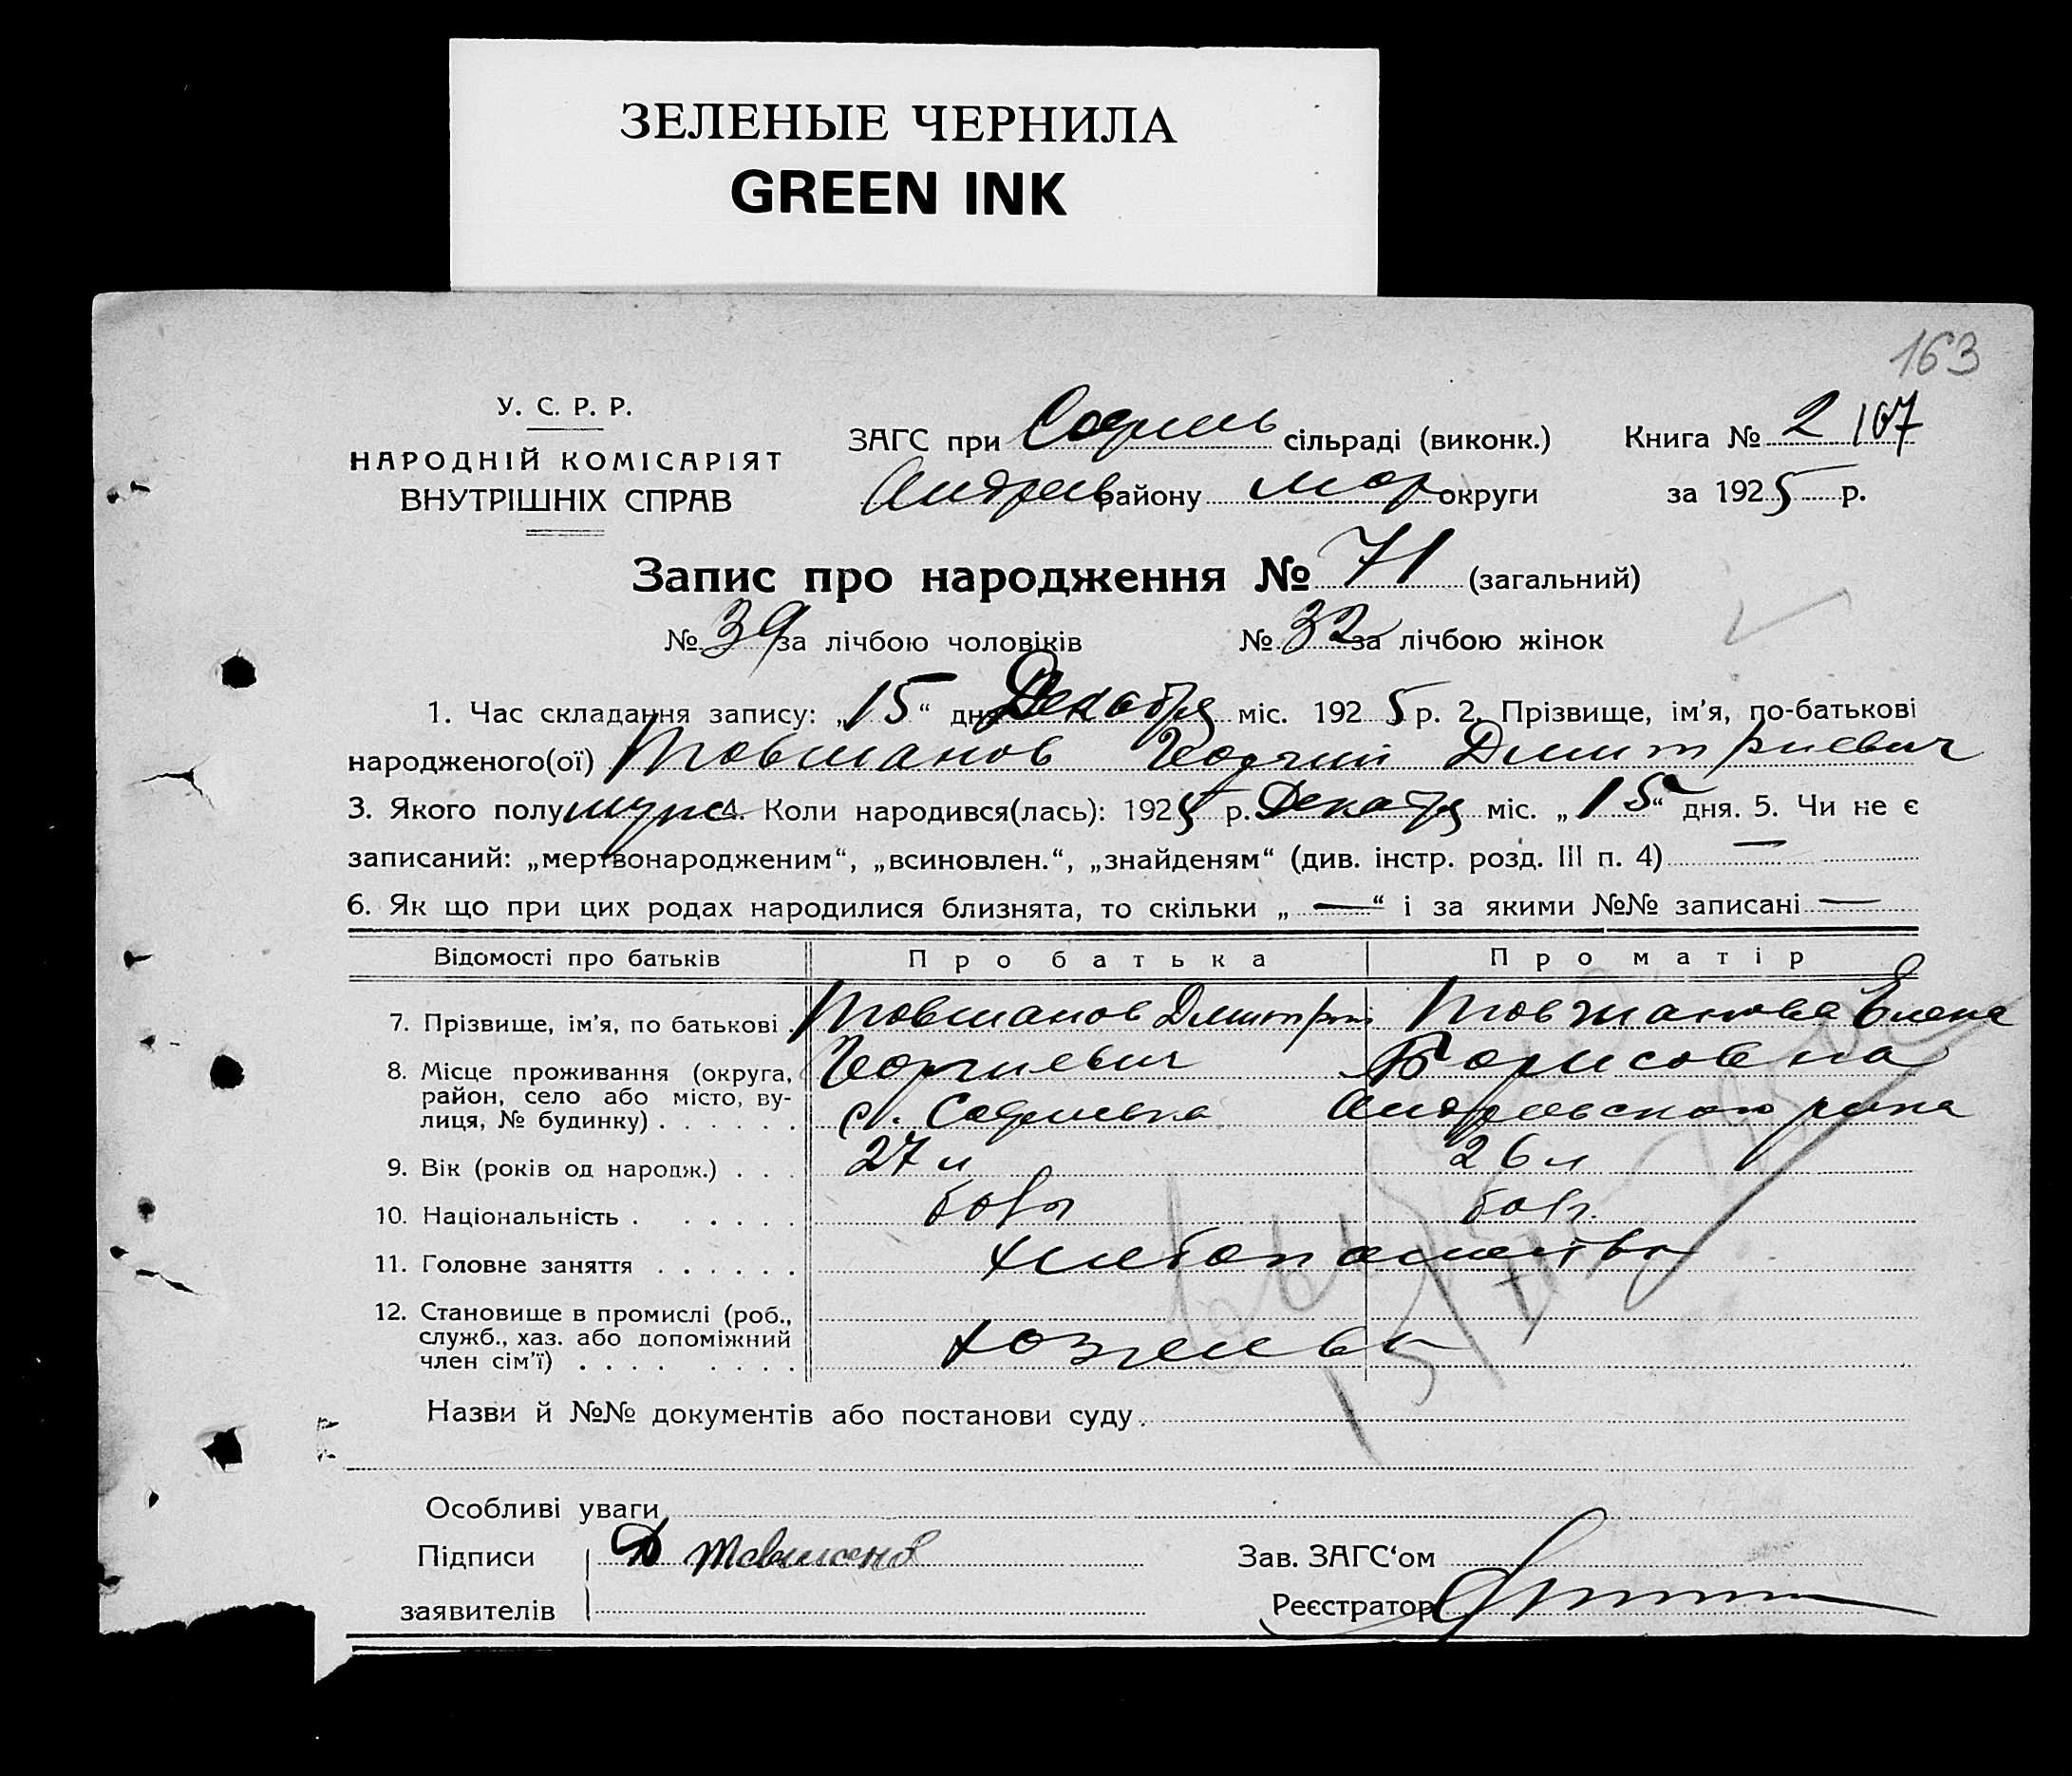 ЗЕЛЕНЫЕ ЧЕРНИЛА
GREEN INK
163
У. С. Р. Р.
НАРОДНІЙ КОМІСАРІЯТ
ВНУТРІШНІХ СПРАВ
ЗАГС при Софиев сільраді (виконк.) Книга № 2 167
Андреев району Мар округи за 1925 р.
Запис про народження № 71 (загальний)
№ 39 за лічбою чоловіків № 32 за лічбою жінок
1. Час складання запису: „15“ дня Декабря міс. 1925 р. 2. Прізвище, ім’я, по-батькові
народженого(ої) Товшанов Георгий Дмитриевич
3. Якого полу мужс 4. Коли народився(лась): 1925 р. Декабря міс. „15“ дня. 5. Чи не є
записаний: „мертвонародженим“, „всиновлен.“, „знайденям“ (див. інстр. розд. III п. 4) —
6. Як що при цих родах народилися близнята, то скільки „—“ і за якими №№ записані —
Відомості про батьків Про батька Про матір
7. Прізвище, ім’я, по батькові Товшанов Дмитрий Товшанова Елена
8. Місце проживання (округа, Георгиевич Борисовна
район, село або місто, ву-
лиця, № будинку) с. Софиевка Андреевского рина
9. Вік (років од народж.) 27 л 26 л
10. Національність болг болг.
11. Головне заняття хлебопашество
12. Становище в промислі (роб.,
служб., хаз. або допоміжний
член сім’ї) хозяева
Назви й №№ документів або постанови суду
Особливі уваги
Підписи Д Товшанов Зав. ЗАГС‘ом
заявителів Реєстратор